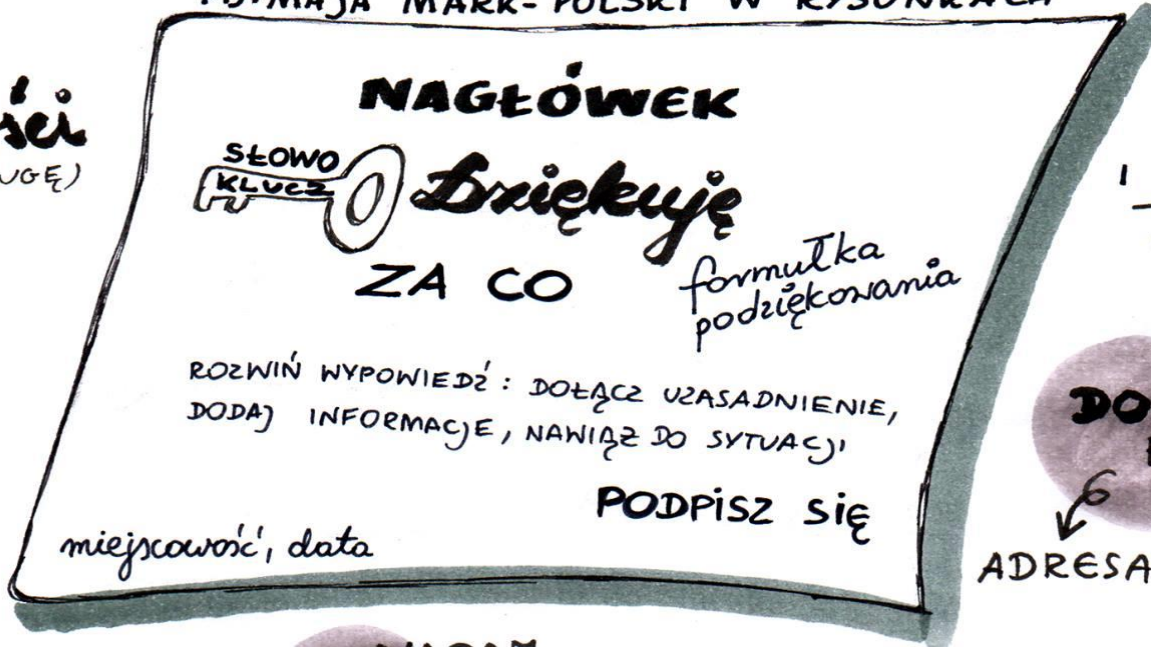 MARK-POLSKI W RYSUNKACH
NAGŁÓWEK
SŁOWO
KLUCZ
Dziękuję
ZA CO
formułka
podziękowania
ROZWIŃ WYPOWIEDŹ: DOŁĄCZ UZASADNIENIE,
DODAJ INFORMACJE, NAWIĄŻ DO SYTUACJI
PODPISZ SIĘ
miejscowość, data
ści
UGĘ)
DO
ADRESA